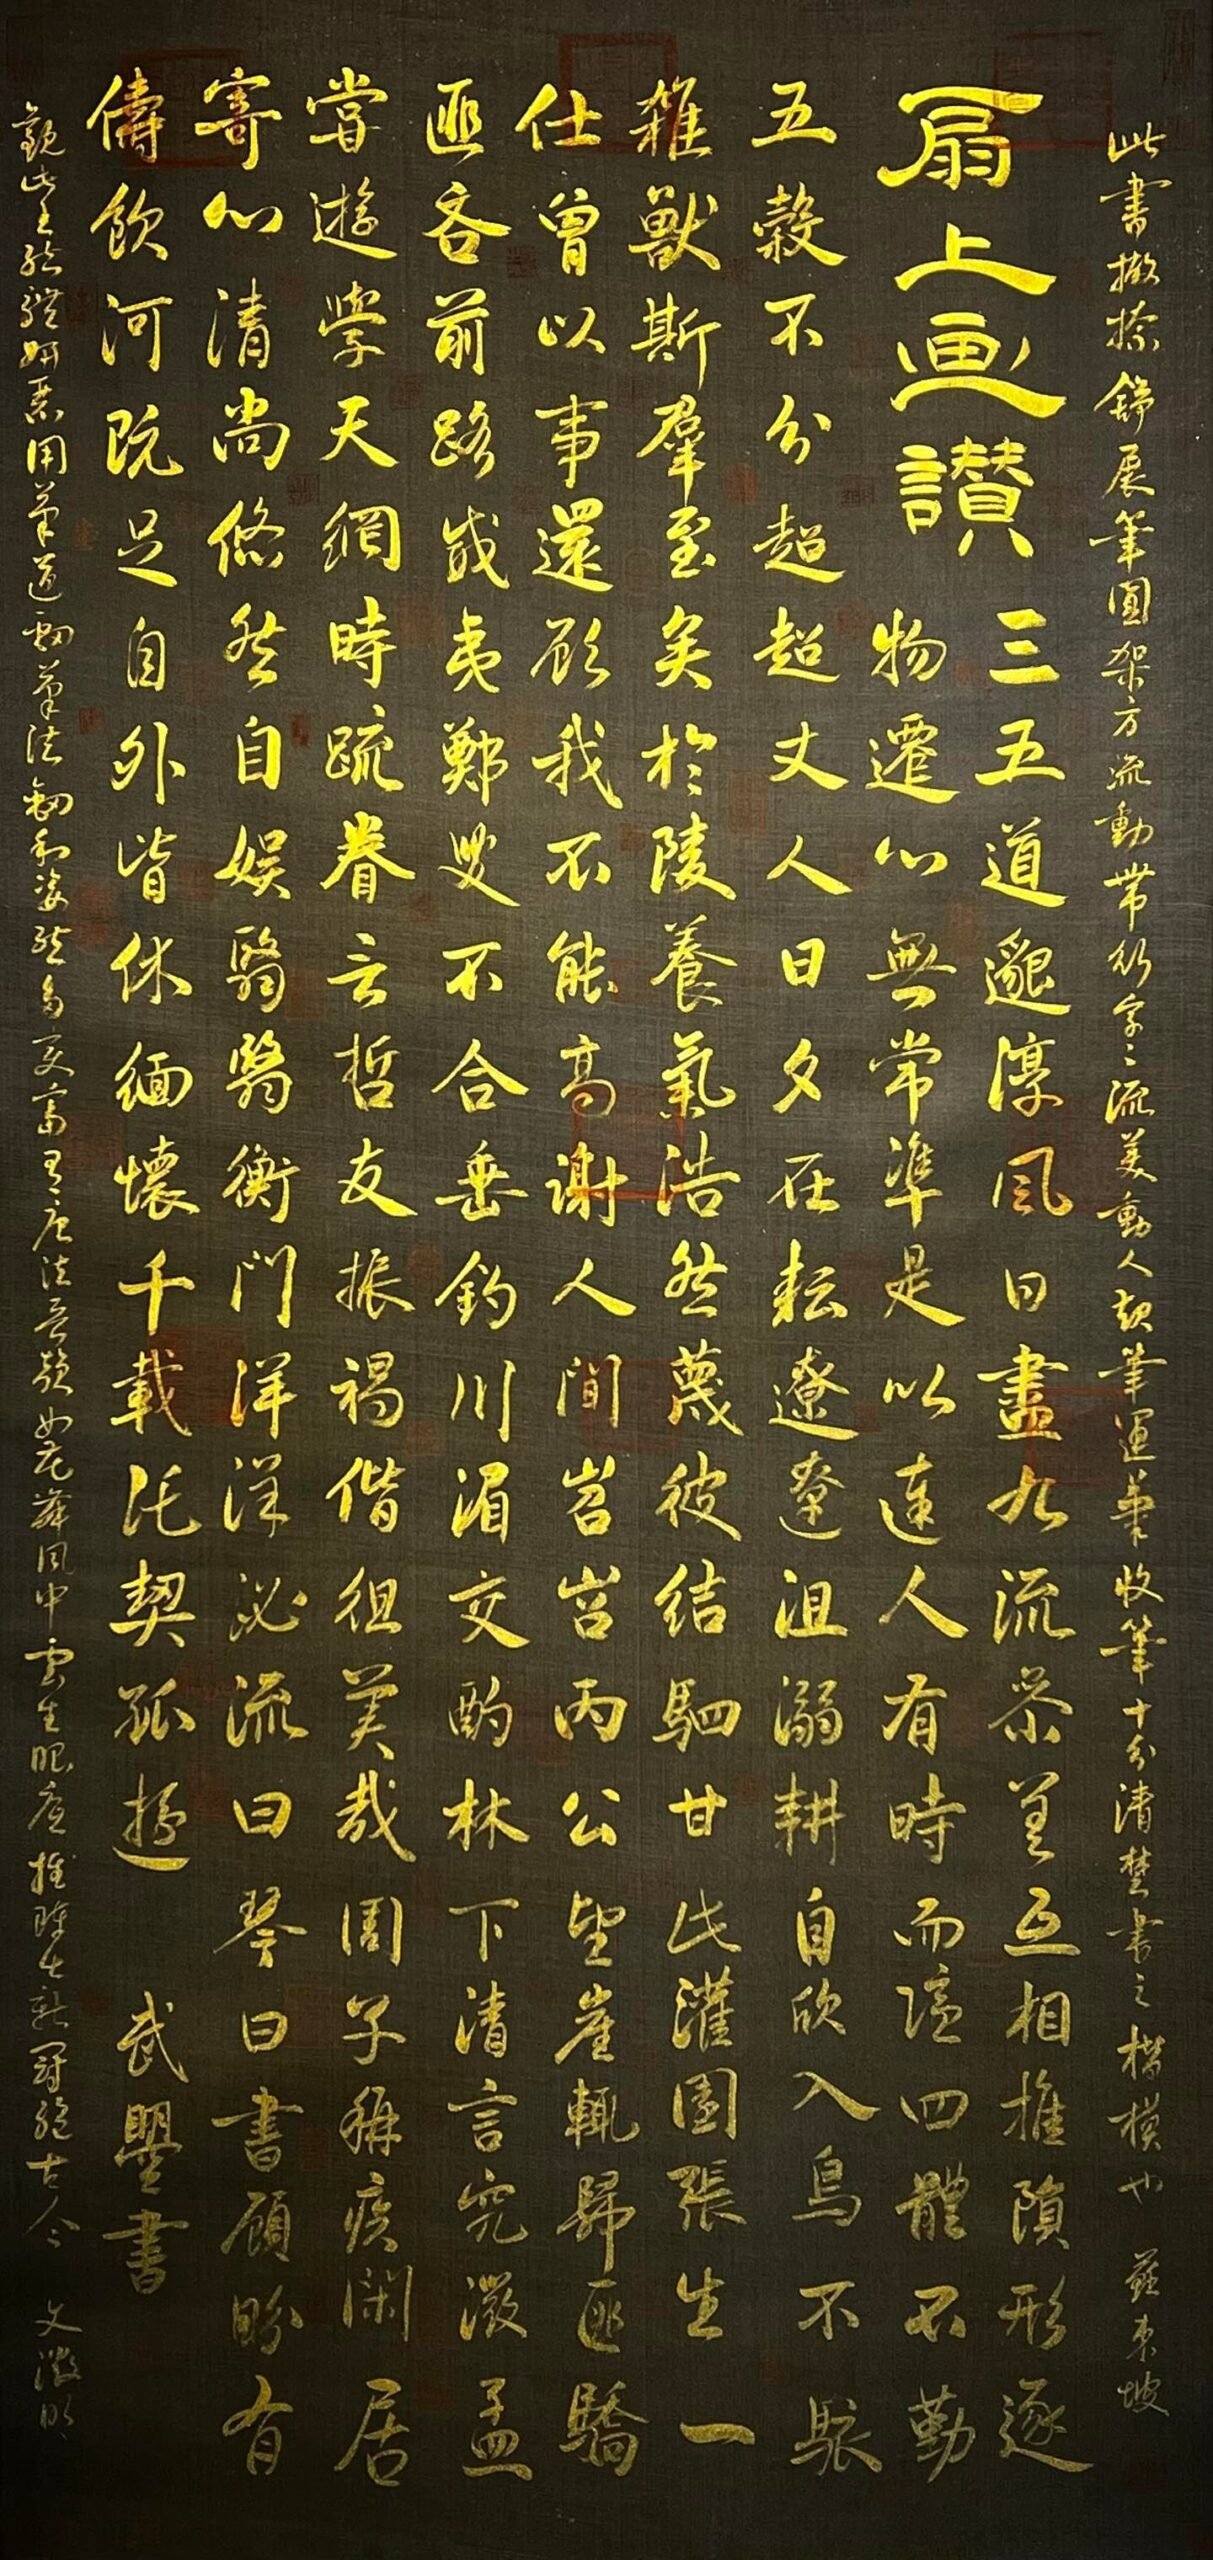 此書撇捺舒展筆圓架方流動帶行字々流美動人起筆運筆收筆十分清楚書之楷模也 蘇東坡
扇上画讃 三五道邈淳風日盡九流參差互相推隕形逐
物遷心無常準是以達人有時而隱四體不勤
五穀不分超超丈人日夕在耘遼遼沮溺耕自欣入鳥不駭
雜獸斯羣至矣於陵養氣浩然蔑彼結駟甘此灌園張生一
仕曾以事還顧我不能高謝人間岧岧丙公望崖輒歸匪驕
匪吝前路威夷鄭叟不合垂釣川湄交酌林下清言究微孟
嘗遊學天網時疏眷言哲友振褐偕徂美哉周子稱疾閑居
寄心清尚悠然自娛翳翳衡門洋洋泌流曰琴曰書顧盼有
儔飲河既足自外皆休緬懷千載託契孤遊 武曌書
觀此書體妍麗用筆遒勁筆法多變富有唐法如花舞風中雲生眼底推陳出新冠絕古今 文徵明